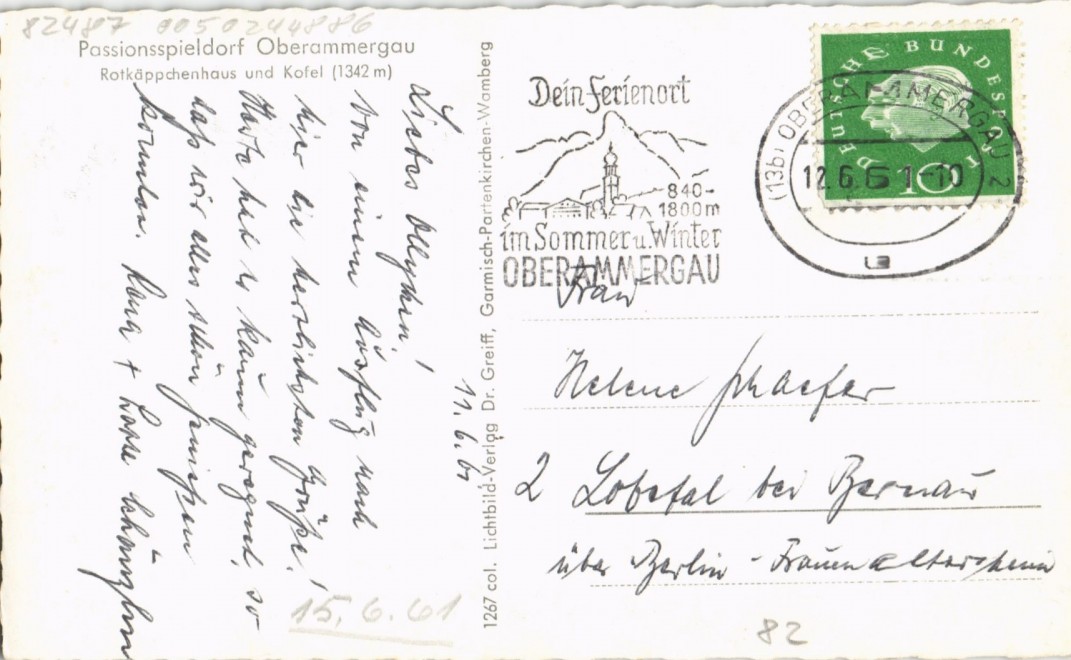 82487 00502444886
Passionsspieldorf Oberammergau
Rotkäppchenhaus und Kofel (1342 m)
11.6.61
Liebes Ollychen!
Von einem Ausflug nach
hier die herzlichsten Grüße!
Heute hat es kaum geregnet, so
daß wir alles schön genießen
konnten.
15.6.61
1267 col. Lichtbild-Verlag Dr. Greiff, Garmisch-Partenkirchen-Wamberg
Dein Ferienort
840-
1800m
im Sommer u. Winter
OBERAMMERGAU
DEUTSCHE BUNDESPOST
10
(13b) OBERAMMERGAU 2
12.6.61-10
Frau
Helene Schaefer
2 Lobetal bei Bernau
über Berlin - Frauenaltersheim
82